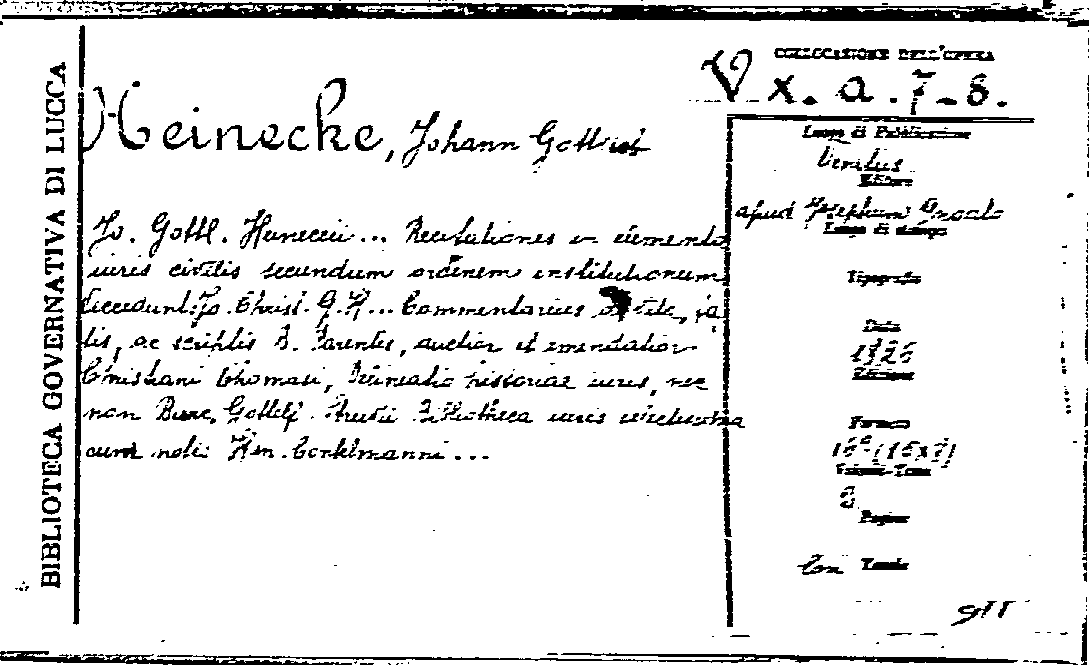 BIBLIOTECA GOVERNATIVA DI LUCCA
COLLOCAZIONE DELL'OPERA
V x. a. 7-8.
Heinecke, Johann Gottlieb
Jo. Gottl. Heineccii... Recitationes in elementa
iuris civilis secundum ordinem institutionum
accedunt Jo. Christ. G. H... Commentarius vita, fa
tis, ac scriptis Parentis, auctior et emendatior
Christiani Thomasii, Delineatio historiae iuris, nec
non Burc. Gotthelf. Struvii Bibliotheca iuris
cum notis Hen.
Luogo di Pubblicazione
Venetiis
Editore
apud Josephum
Luogo di stampa
Tipografia
Data
Edizione
Formato
16°
Volumi-Tomi
2
Pagine
Con Tavole